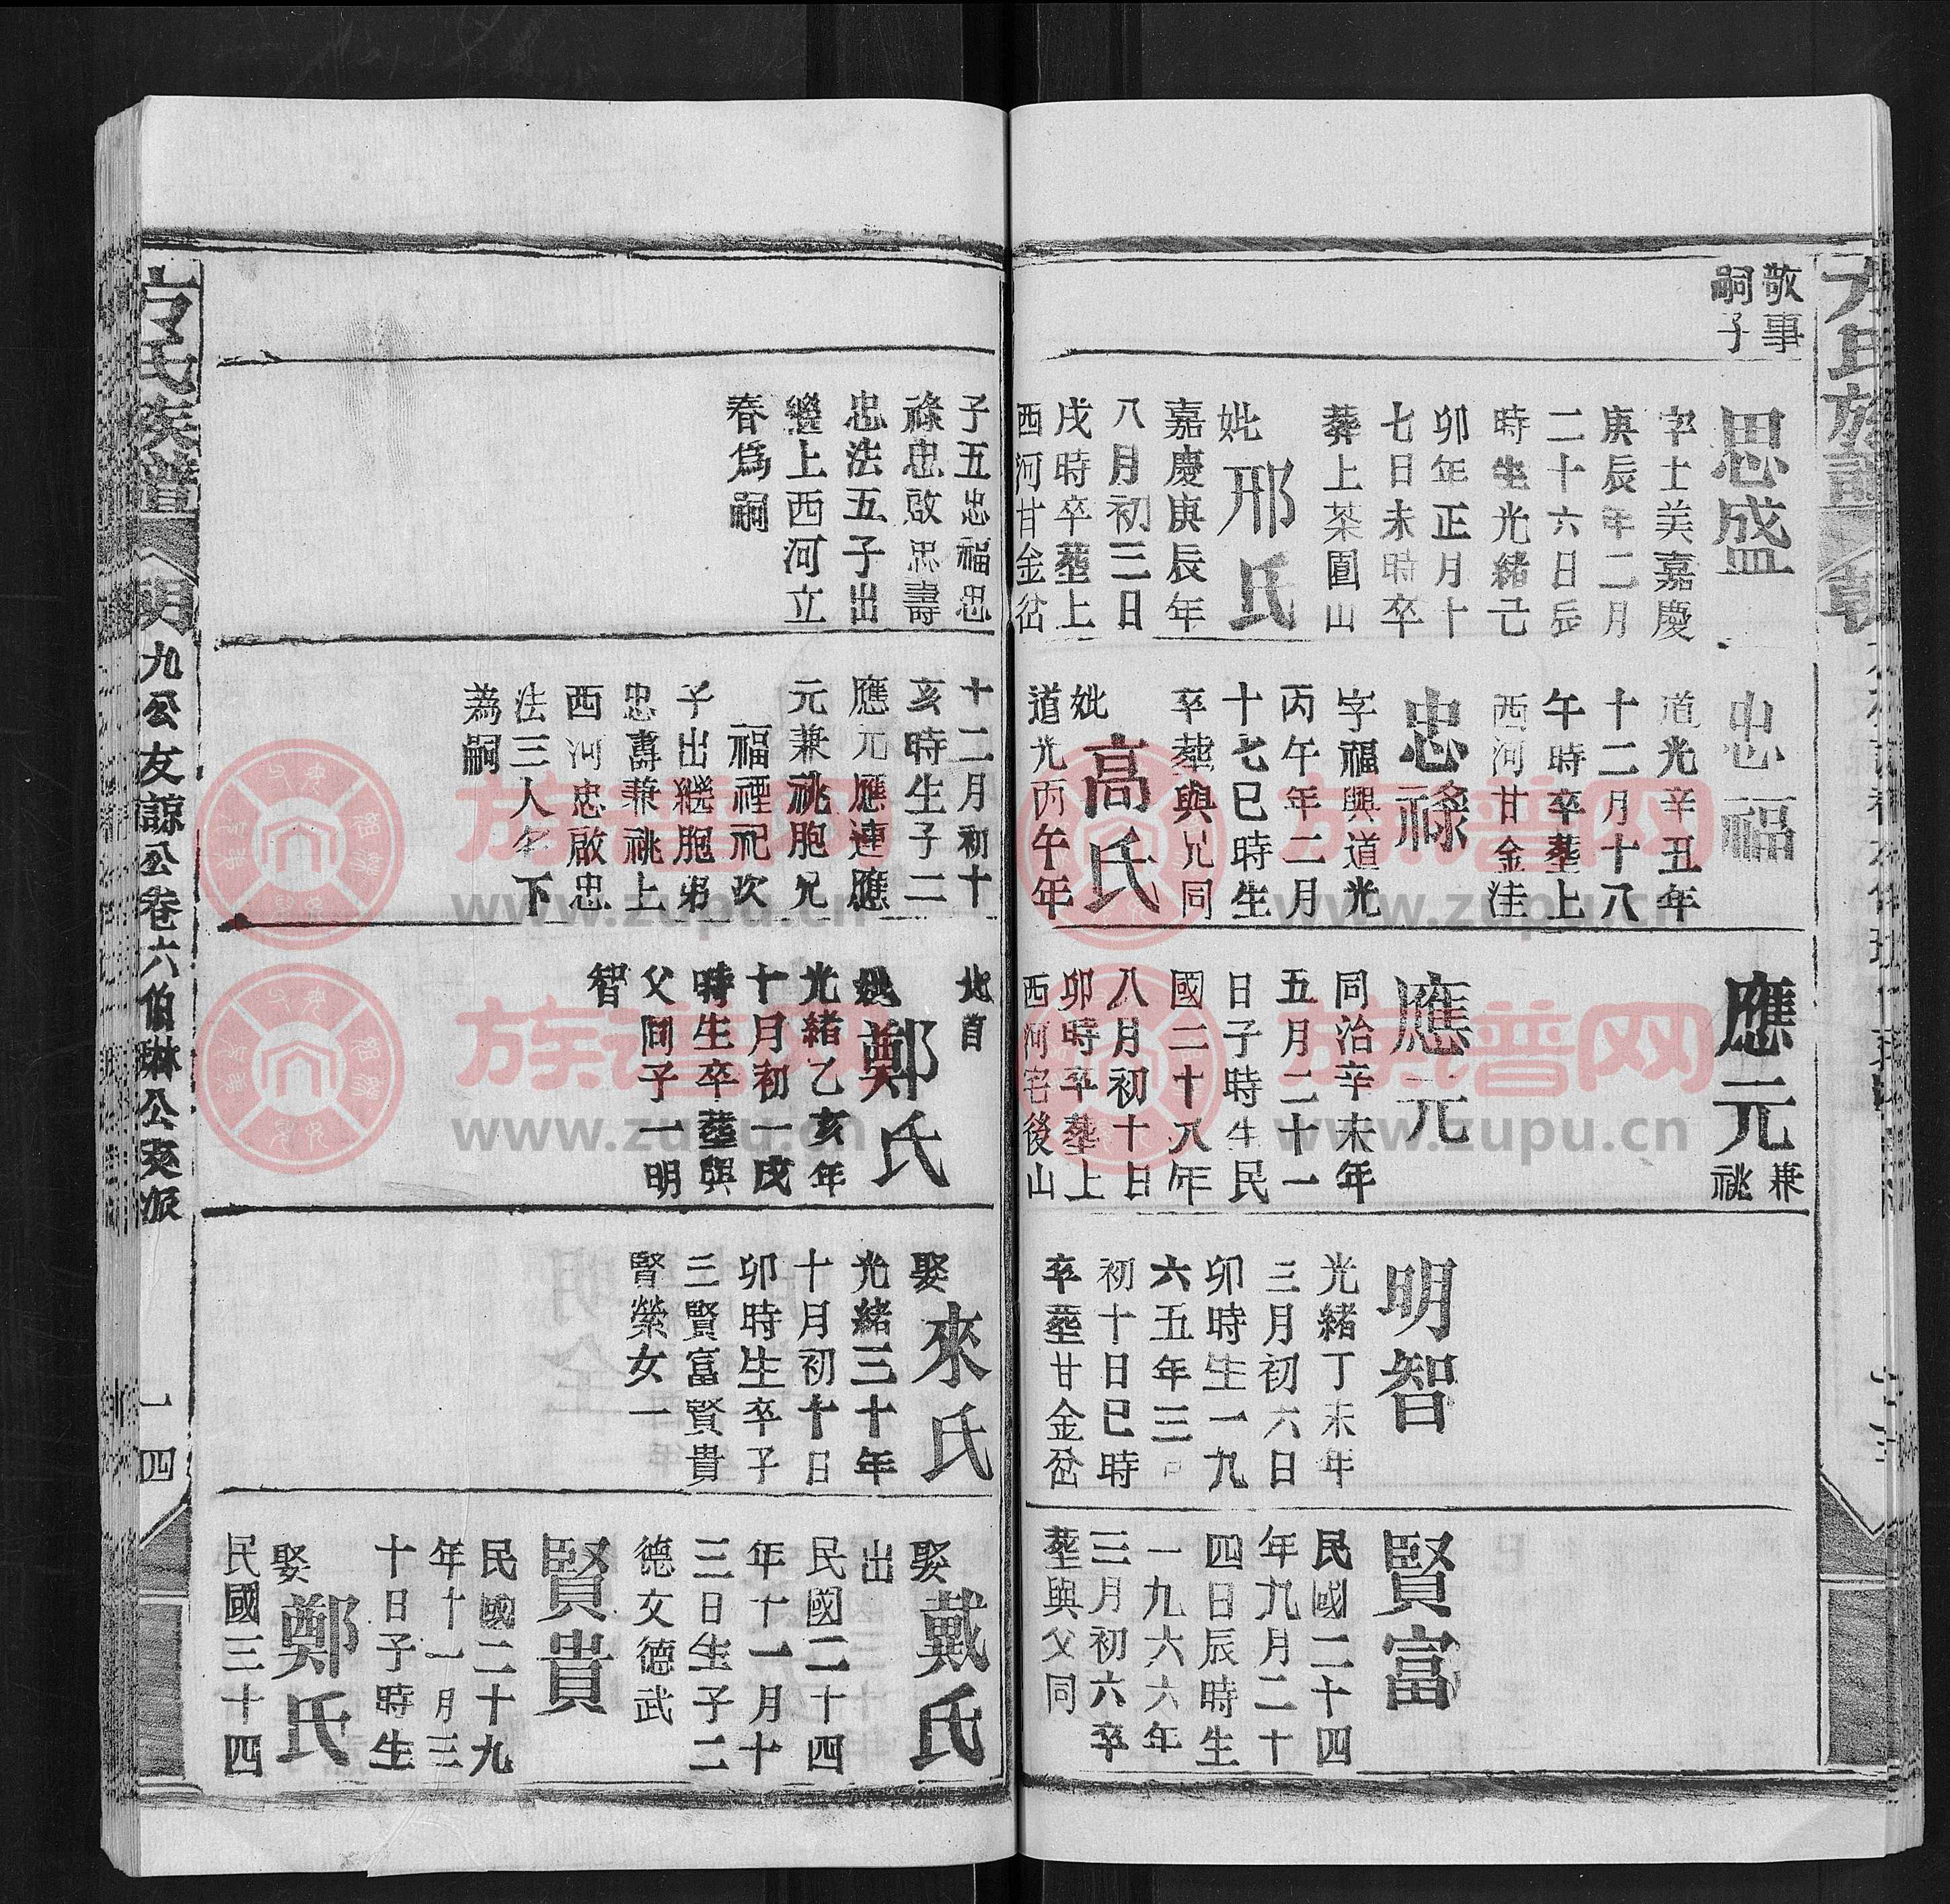 方氏族譜
敬事
嗣子
思盛
字士美嘉慶
庚辰年二月
二十六日辰
時生光緒己
卯年正月十
七日未時卒
葬上茶園山
妣邢氏
嘉慶庚辰年
八月初三日
戌時卒葬上
西河甘金岔
忠福
道光辛丑年
十二月十八
午時卒葬上
西河甘金洼
忠祿
字福興道光
丙午年二月
十七巳時生
卒葬與兄同
妣高氏
道光丙午年
應元兼祧
應元
同治辛未年
五月二十一
日子時生民
國二十八年
八月初十日
卯時卒葬上
西河宅後山
明智
光緒丁未年
三月初六日
卯時生一九
六五年三月
初十日巳時
卒葬甘金岔
賢富
民國二十四
年九月二十
四日辰時生
一九六六年
三月初六卒
葬與父同
子五忠福忠
祿忠啟忠壽
忠法五子出
繼上西河立
春爲嗣
十二月初十
亥時生子二
應元應連應
元兼祧胞兄
福禋祀次
子出繼胞弟
忠壽兼祧上
西河忠啟忠
法三人名下
為嗣
北首
妣鄭氏
光緒乙亥年
十月初一戌
時生卒葬與
父同子一明
智
娶來氏
光緒三十年
十月初十日
卯時生卒子
三賢富賢貴
賢榮女一
娶戴氏
出
民國二十四
年十一月十
三日生子二
德文德武
賢貴
民國二十九
年十一月三
十日子時生
娶鄭氏
民國三十四
方氏族譜
明九公友諒公卷六伯琳公爽派
一四
族谱网
www.zupu.cn
族谱网
www.zupu.cn
族谱网
www.zupu.cn
族谱网
www.zupu.cn